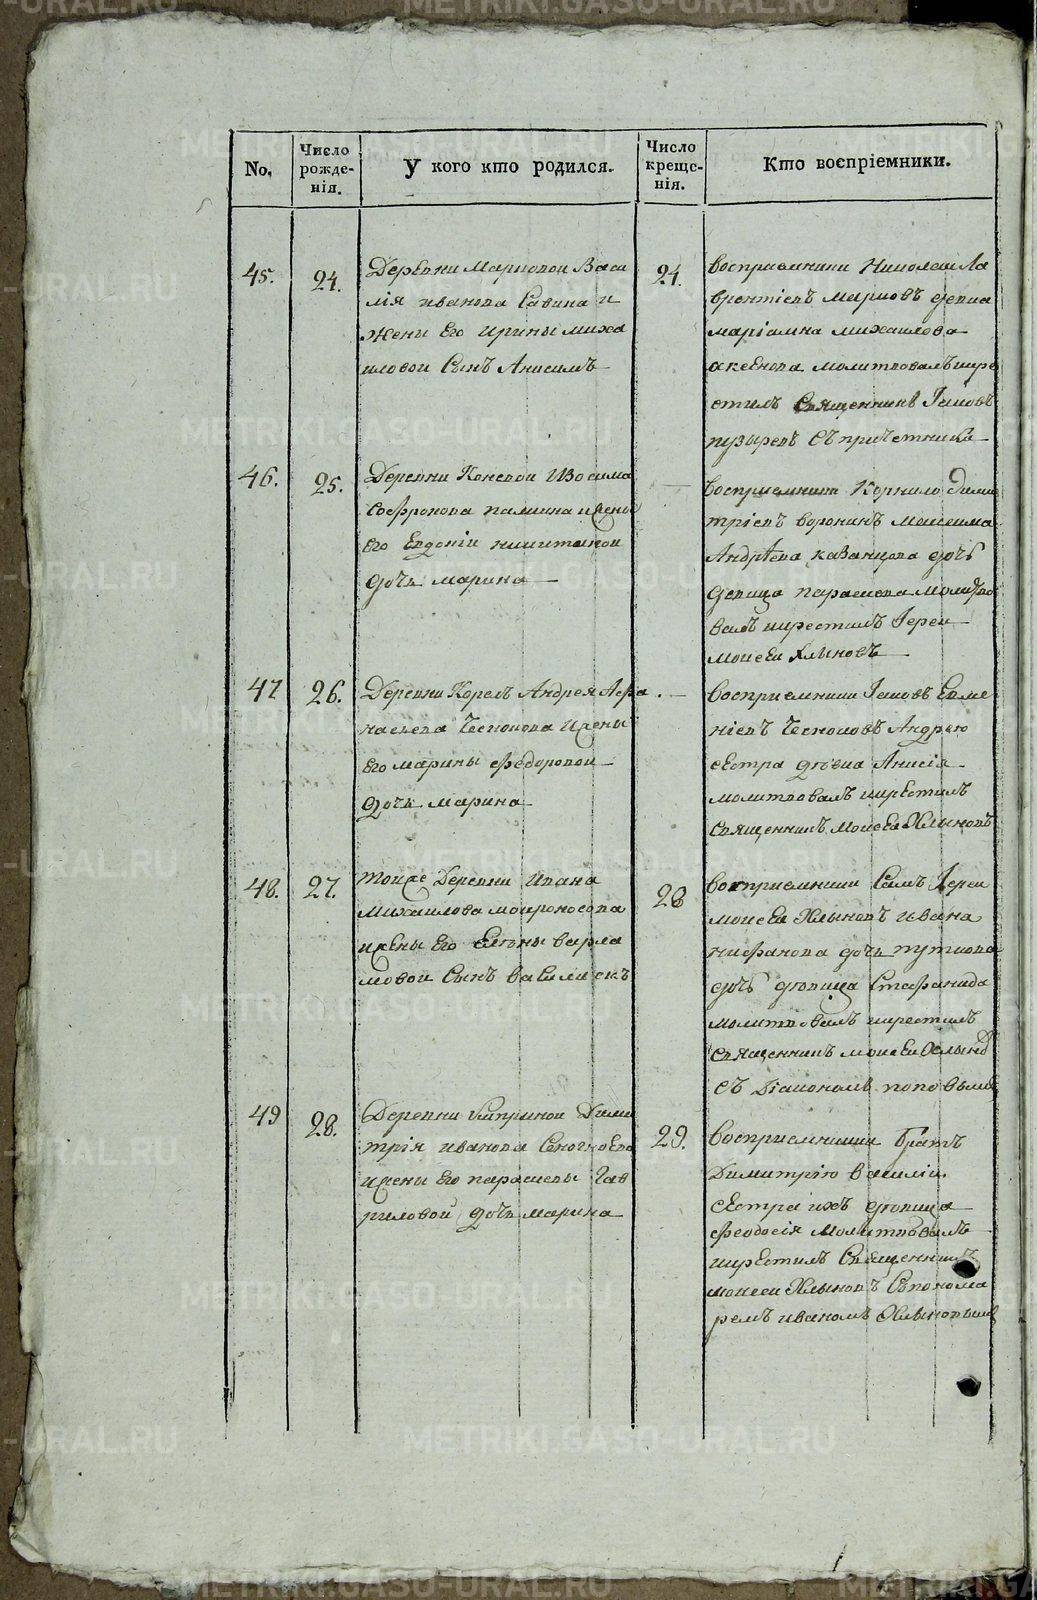 No.
Число рожденія.
У кого кто родился.
Число крещенія.
Кто воспріемники.
45.
24.
Деревни Марковой Васи
лія иванова Савина и
Жены Его ирины миха
иловой Сынъ Анисимъ
24.
восприемники Николаи Ла
врентіевъ марковъ девка
маріамна михаилова
аксенова молитвовалъ икре
стилъ Священникъ Іаковъ
пузыревъ Съ причетника
46.
25.
Деревни Коневои Изосима
Софронова палкина ижены
Его Евдокіи никитиной
дочь марина
восприемники Корнило дими
тріевъ воронинъ максима
Андрѣева казанцова дочь
девица парасковья молитво
валъ икрестилъ Іереи
моисеи Хлыновъ
47
26.
Деревни Корелъ Андрея Афа
насьева Чеснокова ижены
Его марины федоровои
дочь марина
восприемники Іаковъ Евме
ніевъ Чесноковъ Андрею
сестра дѣвка Анисія
молитвовалъ икрестилъ
Священникъ моисеи Хлыновъ
48.
27.
тоиже Деревни Ивана
михаилова мокроносова
ижены Его Елены варла
мовои Сынъ василискъ
28
восприемники Самъ Іереи
моисеи Хлыновъ ивана
никфанова дочь путкова
дочь девица Стафанида
молитвовалъ икрестилъ
Священникъ моисеи Хлыновъ
Съ Діакономъ поповымъ
49
28.
Деревни Димит
трія иванова
ижены Его парасковьи Гав
риловой дочь марина
29.
Восприемники братъ
Димитрію василіи
сестра ихъ девица
Феодосія молитвовалъ
икрестилъ Священникъ
моисеи Хлыновъ Съпонома
ремъ иваномъ Хлыновымъ
METRIKI.GASO-URAL.RU